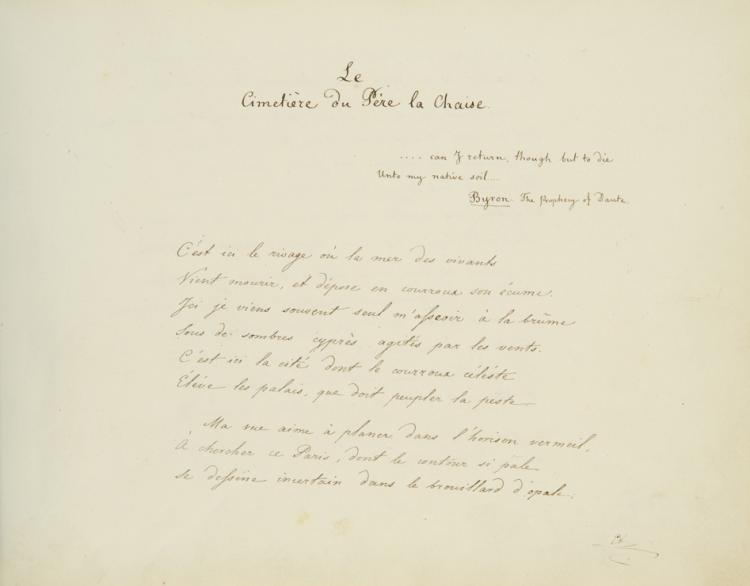 Le
Cimetière du Père la Chaise.
.... can I return, though but to die
Unto my native soil....
Byron. The Prophecy of Dante.
C'est ici le rivage où la mer des vivants
Vient mourir, et dépose en courroux son écume.
Ici je viens souvent seul m'asseoir à la brûme
Sous de sombres cyprès agités par les vents.
C'est ici la cité dont le courroux céleste
Élève les palais, que doit peupler la peste
Ma vue aime à planer dans l'horison vermeil,
À chercher ce Paris, dont le contour si pâle
se dessine incertain dans le brouillard d'opale.